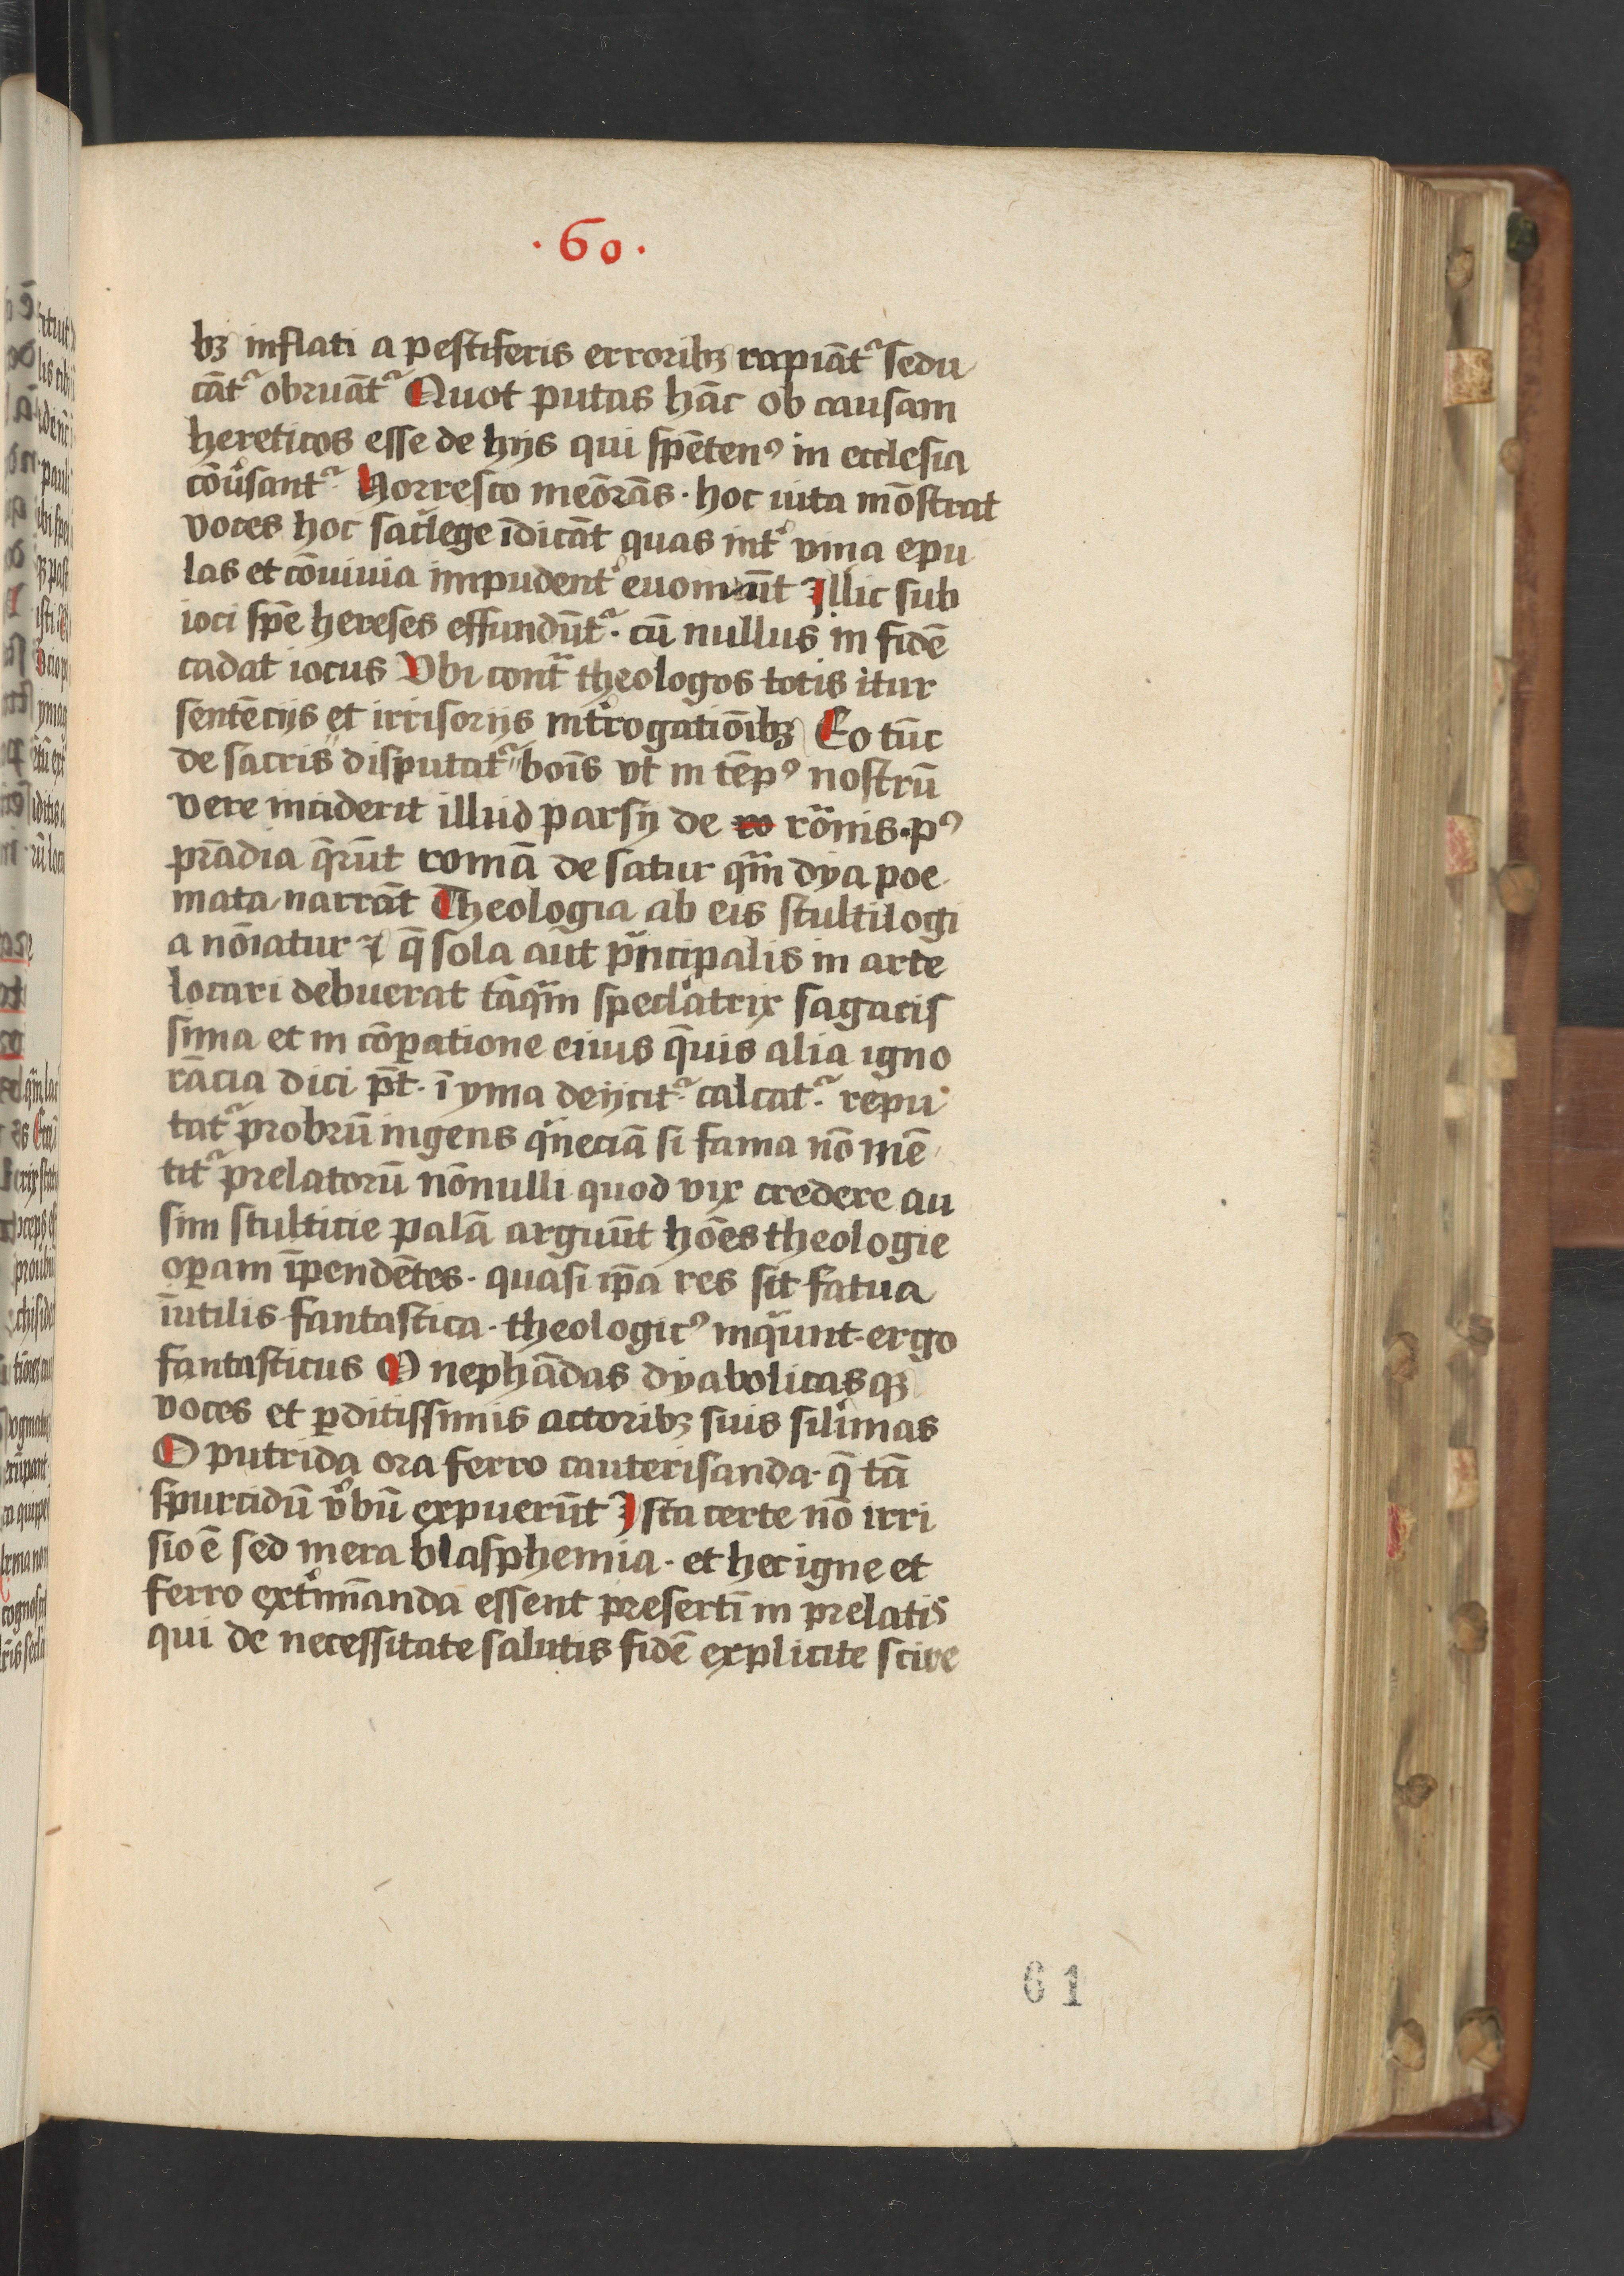 ·60·
bꝫ inflati a pestiferis erroribꝫ rapiāt᷑ sedu
cāt᷑ obruāt᷑ Quot putas hāc ob causam
hereticos esse de hijs qui spētenꝰ in ecclesia
cōu͛sant᷑ Horresco meōrās · hoc uita mōstrat
voces hoc sac͛lege īdicāt quas int͛ vina epu
las et cōuiuia impudent͛ euomūt Illic sub
ioci spē hereses effundūt᷑ · cū nullus in fidē
cadat iocus Vbi contᷓ theologos totis itur
sentēciis et irrisorijs int͛rogatiōibꝫ Eo tūc
de sacris disputat᷑ boīs vt in tēpꝰ nostrū
vere inciderit illud parsij de ro rōnis · pꝰ
prādia q̄rūt romā de satur qᷓm dya poe
mata narrāt Theologia ab eis stultilogi
a nōiatur ⁊ q̄ sola aūt pͥncipalis in arte
locari debuerat tāqᷓm specl͛atrix sagacis
sima et in cōꝑatione eiius q̄uis alia igno
rācia dici pt̄ · ī yma deijcit᷑ · calcat᷑ · repu
tat᷑ probrū ingens qͥneciā si fama nō mē
tit᷑ prelatorū nōnulli quod vix credere au
sim stulticie palā arguūt hoēs theologie
oꝑam īpendētes · quasi ip̄a res sit fatua
īutilis fantastica · theologicꝰ inqͥunt · ergo
fantasticus O nephādas dyabolicasqꝫ
voces et ꝑditissimis actoribꝫ suis sil͛imas
O putrida ora ferro cauterisanda · q̄ tā
spurcidū v͛bū expuerūt Ista certe nō irri
sio ē sed mera blasphemia · et hec igne et
ferro ext͛mīanda essent presertī in prelatis
qui de necessitate salutis fidē explicite scire
61